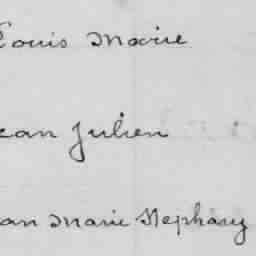 Louis Marie
ean Julien
an Marie Stephany